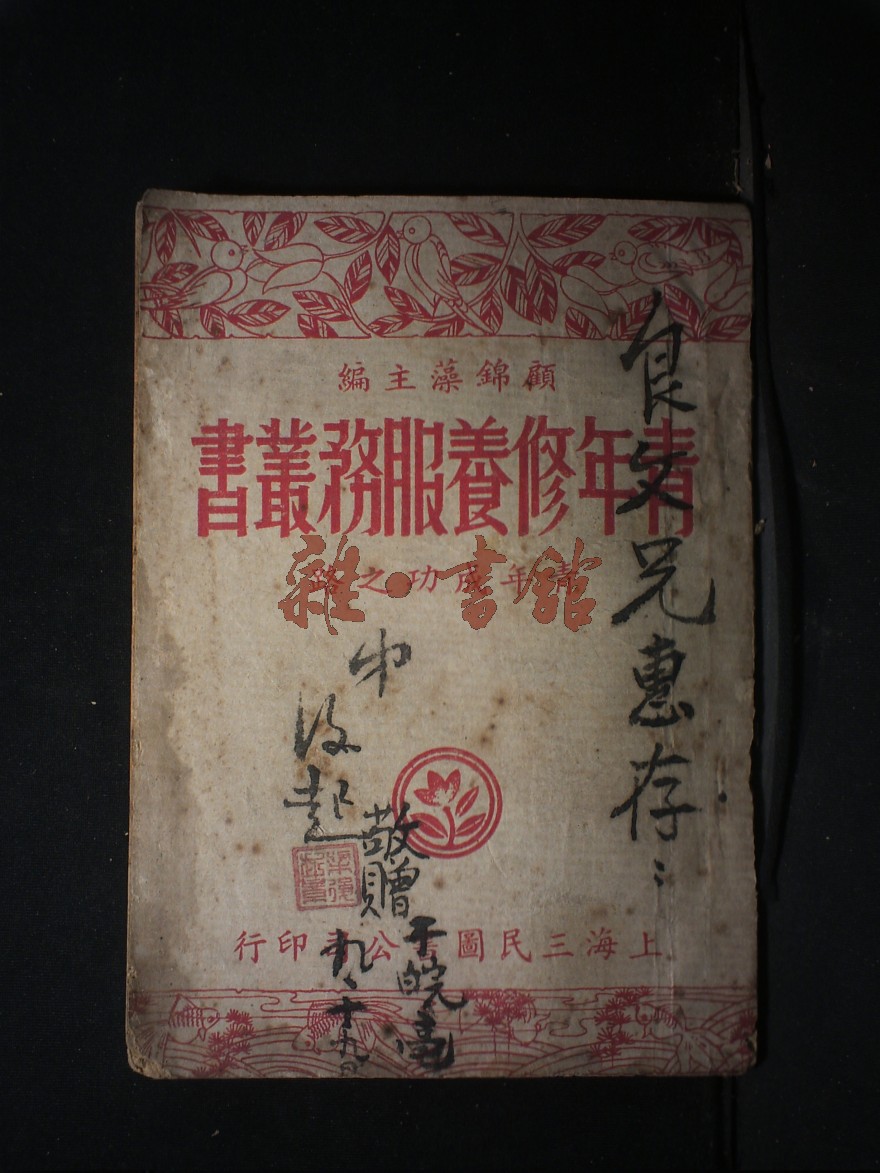 顧錦藻主編
青年修養服務叢書
青年成功之路
雜·書館
上海三民圖書公司印行
良文兄惠存
弟
敬贈于皖
九、十九日